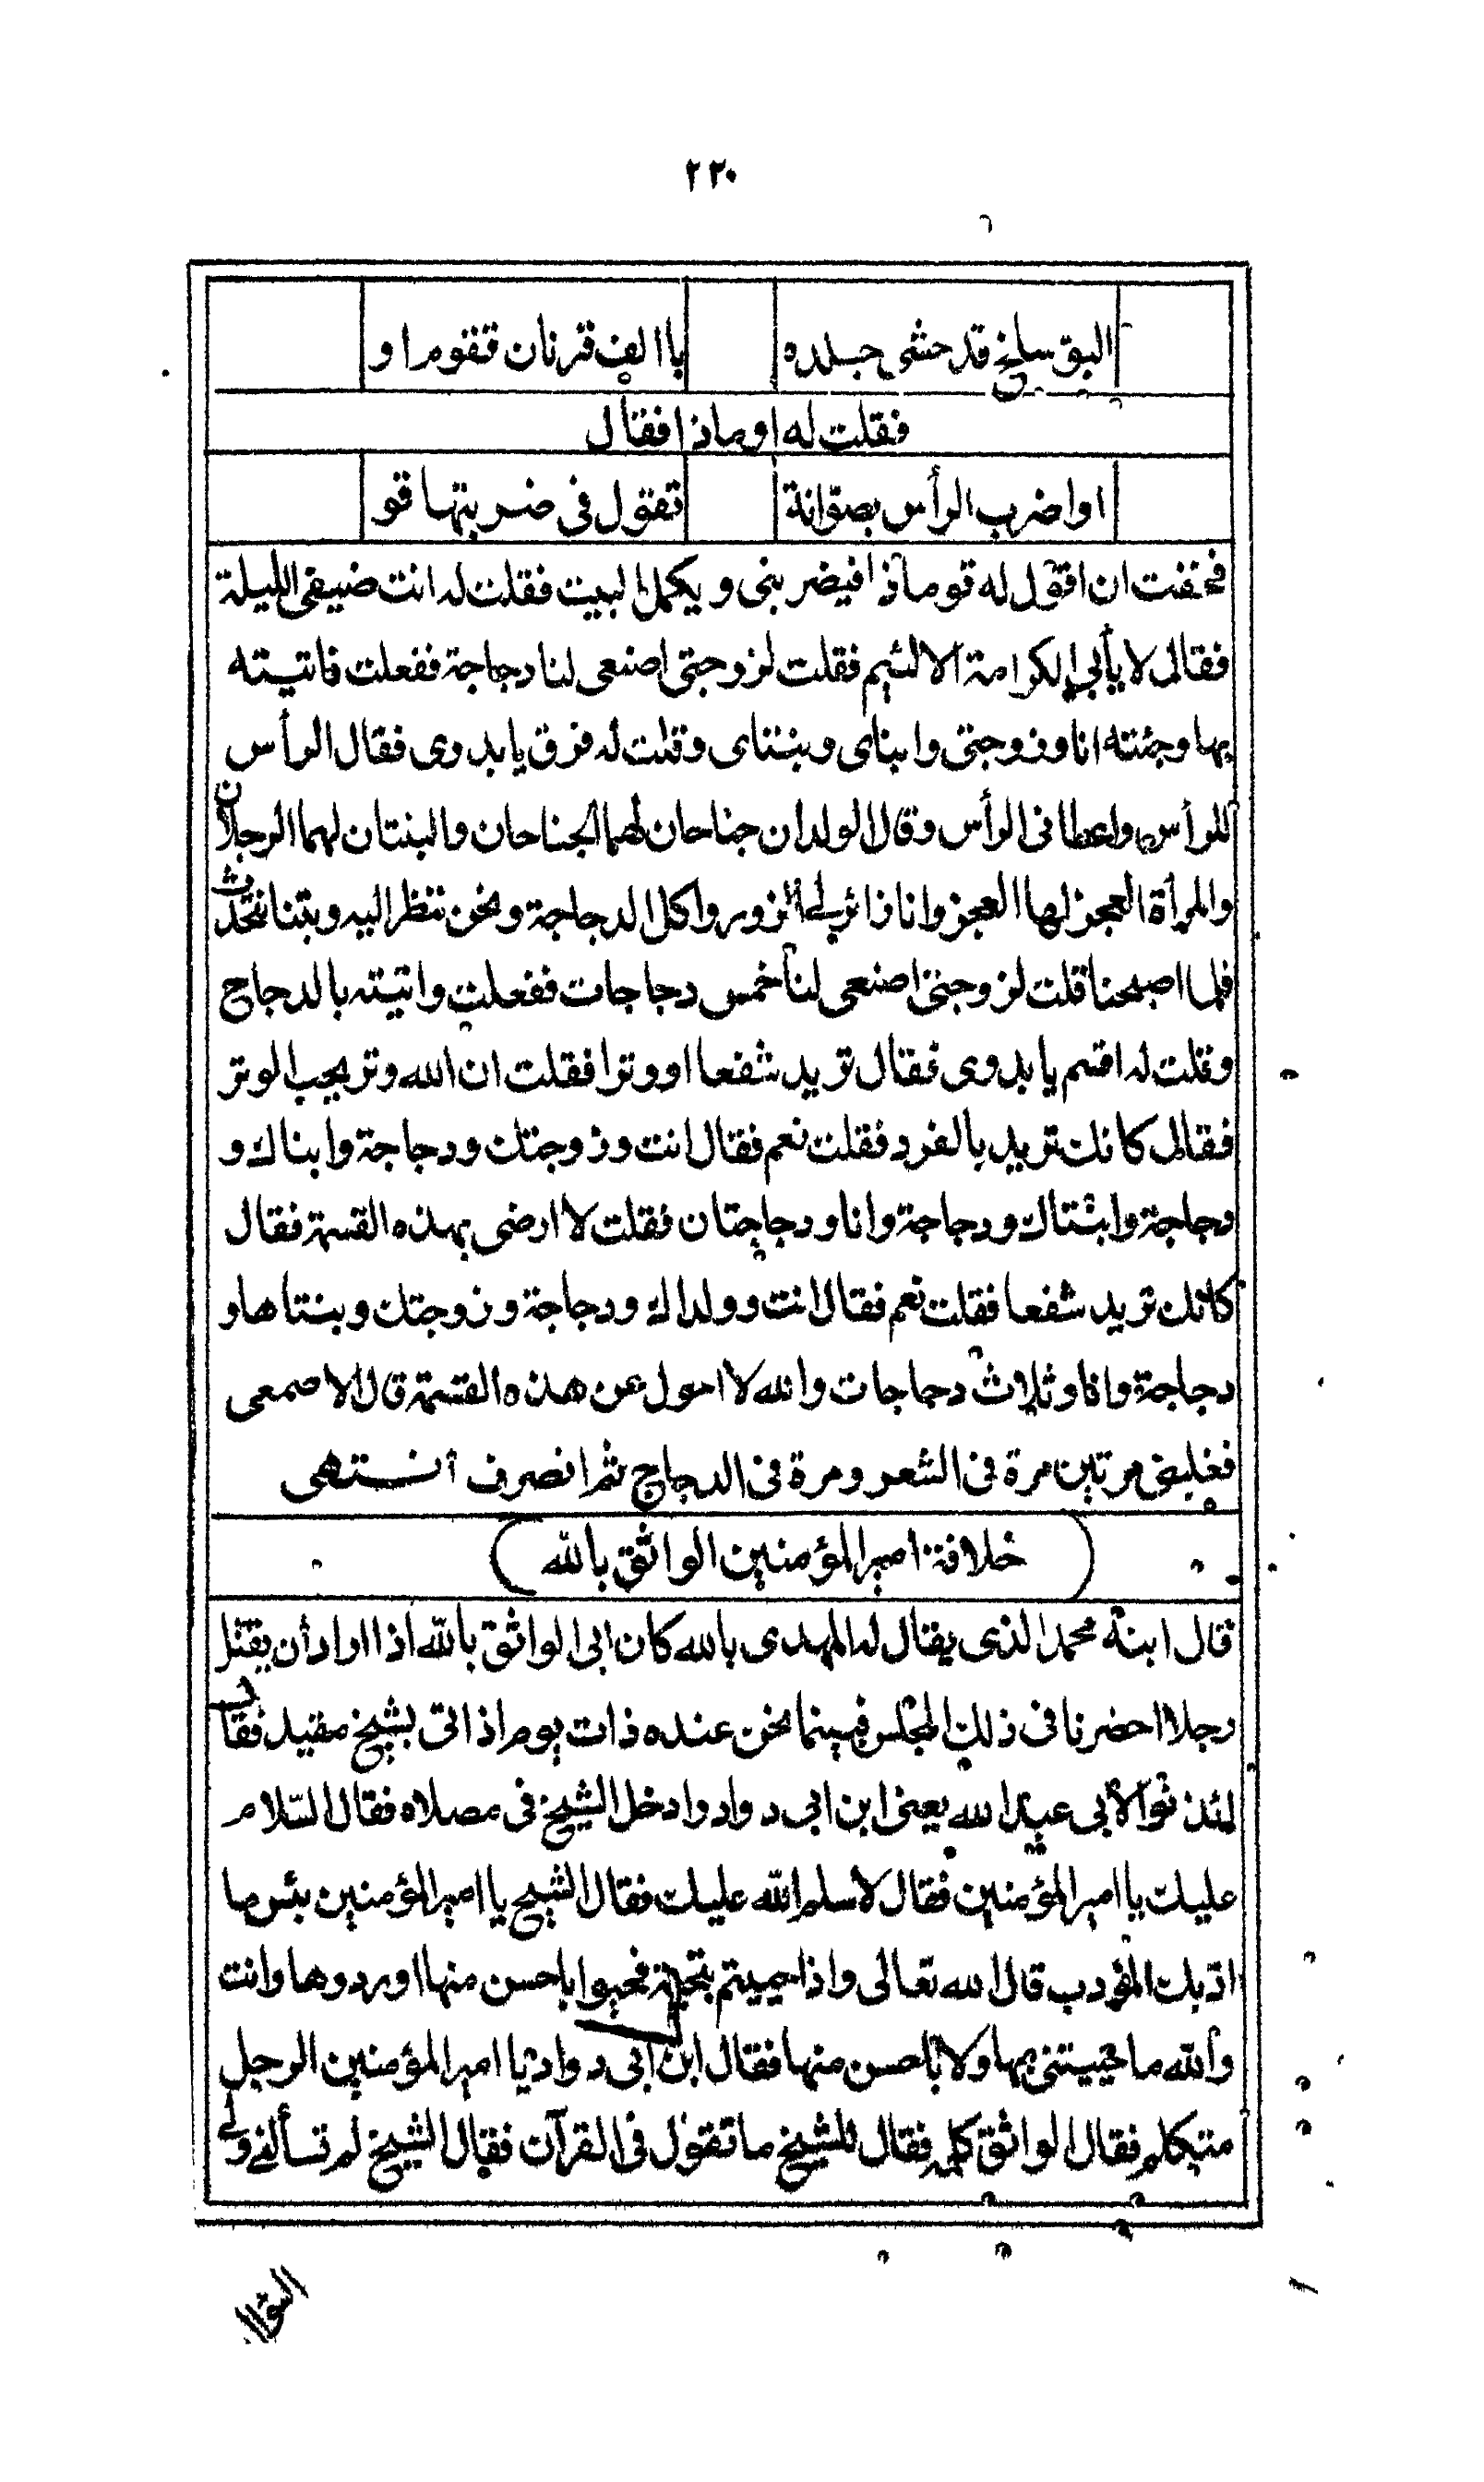 ٢٢٠
البق سلخ قد حشى جلده باالف قرنان تقوم او
فقلت له اوماذا فقال
او اضرب الرأس بصوّانة تقول فى ضربتها قو
فخفت ان اقول له قو ماذا فيضربنى ويكمل البيت فقلت له انت ضيفى الليلة
فقال لا يأبى الكرامة الا لئيم فقلت لزوجتى اصنعى لنا دجاجة ففعلت فاتيته
بها وجئته انا وزوجتى وابناى وبنتاى وقلت له فرق يا بدوى فقال الرأس
للرأس واعطانى الرأس وقال الولدان جناحان لهما الجناحان والبنتان لهما الرجلان
والمرأة العجز لها العجز وانا زائر لى الزور واكل الدجاجة ونحن ننظر اليه وبتنا نتحدث
فلما اصبحنا قلت لزوجتى اصنعى لنا خمس دجاجات ففعلت واتيته بالدجاج
وقلت له اقسم يا بدوى فقال تريد شفعا او وترا فقلت ان الله وتر يحب الوتر
فقال كانك تريد بالفرد فقلت نعم فقال انت وزوجتك ودجاجة وابناك و
دجاجة وابنتاك ودجاجة وانا ودجاجتان فقلت لا ارضى بهذه القسمة فقال
كانك تريد شفعا فقلت نعم فقال انت وولداك ودجاجة وزوجتك وبنتاها و
دجاجة وانا وثلاث دجاجات والله لا احول عن هذه القسمة قال الاصمعى
فغلبنى مرتين مرة فى الشعر ومرة فى الدجاج ثم انصرف انتهى
(خلافة امير المؤمنين الواثق بالله)
قال ابنه محمد الذى يقال له المهدى بالله كان ابى الواثق بالله اذا اراد أن يقتل
رجلا احضرنا فى ذلك المجلس فبينما نحن عنده ذات يوم اذ اتى بشيخ مقيد فقال
ائذنوا لأبى عبد الله يعنى ابن ابى دواد وادخل الشيخ فى مصلاه فقال السّلام
عليك يا امير المؤمنين فقال لا سلم الله عليك فقال الشيخ يا امير المؤمنين بئس ما
ادّبك المؤدب قال الله تعالى واذا حييتم بتحية فحيوا باحسن منها او ردوها وانت
والله ما حييتنى بها ولا باحسن منها فقال ابن ابى دواد يا امير المؤمنين الرجل
متكلم فقال الواثق كلمه فقال للشيخ ما تقول فى القرآن فقال الشيخ لم تسألنى ولى
السؤال